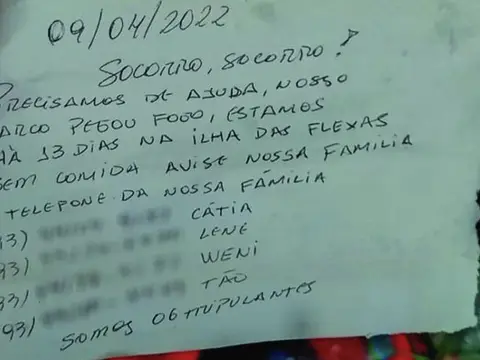 09/04/2022
SOCORRO, SOCORRO!
PRECISAMOS DE AJUDA, NOSSO
ARCO PEGOU FOGO, ESTAMOS
HÀ 13 DIAS NA ILHA DAS FLEXAS
SEM COMIDA AVISE NOSSA FAMILIA
TELEPONE DA NOSSA FÁMILIA
93) CÁTIA
93) LENE
93) WENI
93) TÃO
SOMOS 06 TTUPULANTES